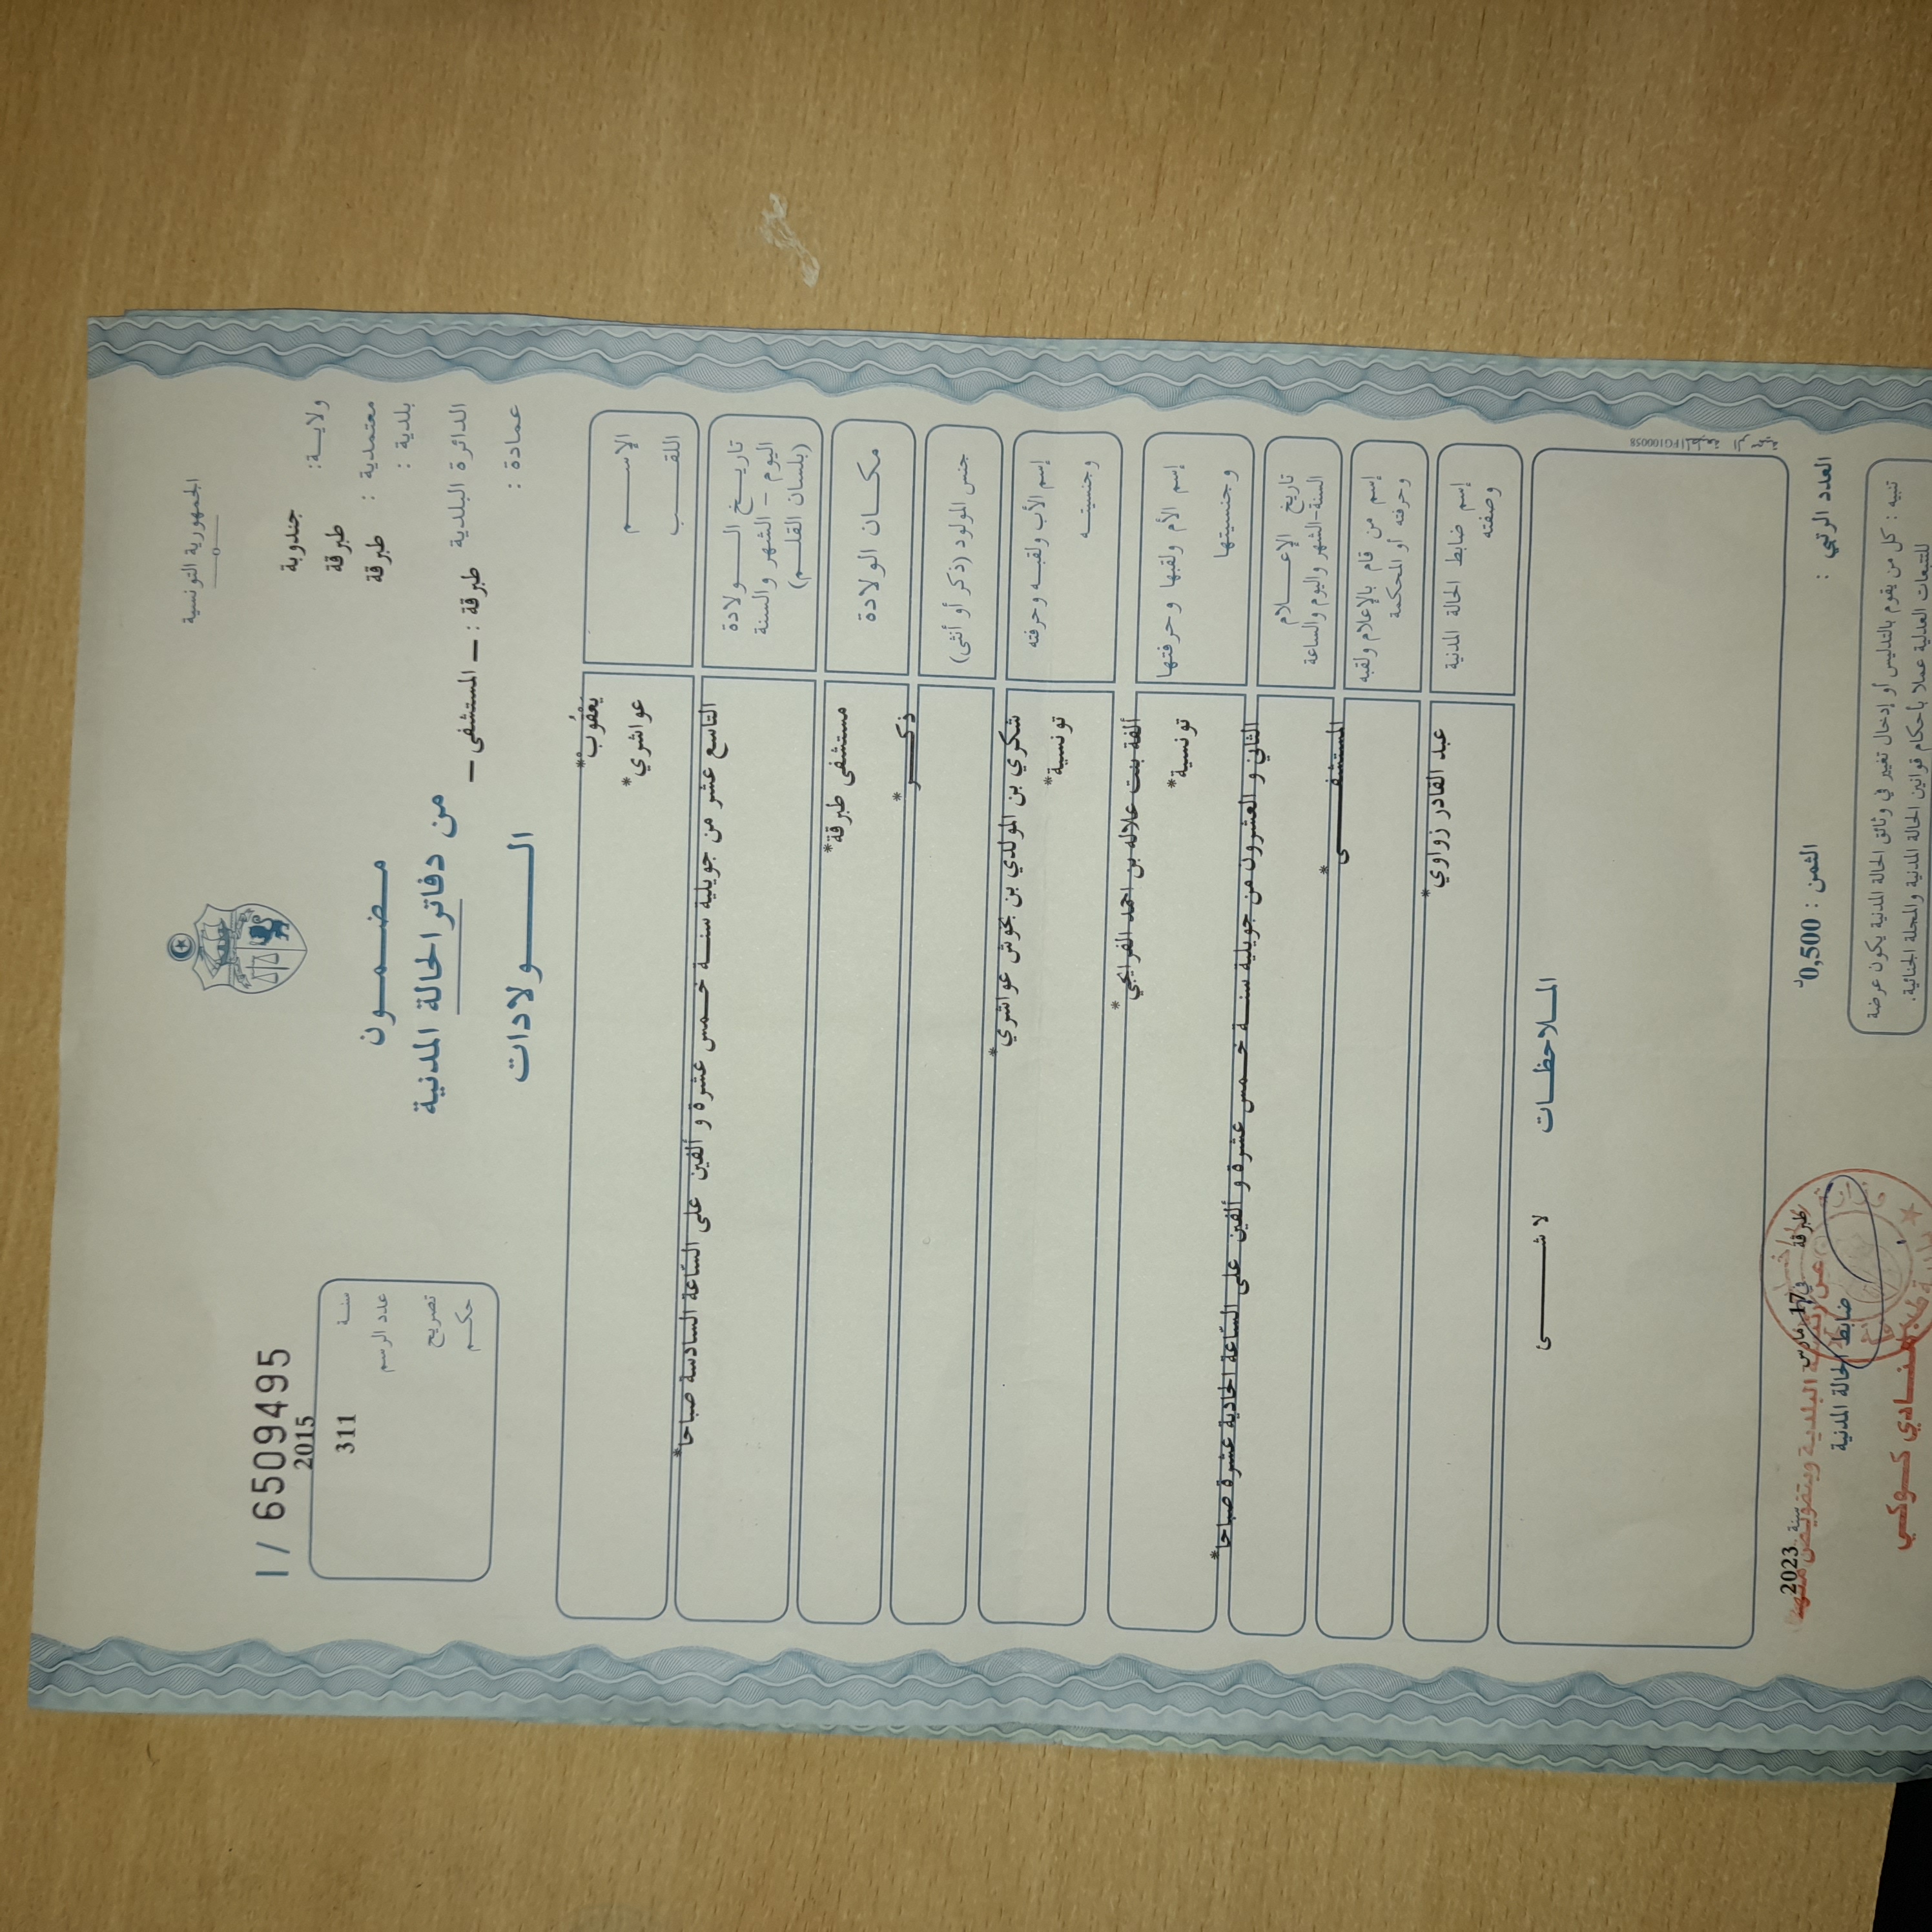 الجمهورية التونسية
ولايـــة: جندوبة
معتمدية : طبرقة
بلدية : طبرقة
الدائرة البلدية طبرقة : — المستشفى —
عمادة :
مـضـمـــون
من دفاتر الحالة المدنية
الـــــولادات
I / 6509495
سنــة 2015
عدد الرسم 311
تصريح
حكـم
الإســـــم يَعْقُوبْ*
اللقـــب عواشري*
تاريـــخ الـــولادة
اليوم - الشهر والسنة
(بلسان القلـــم)
التاسع عشر من جويلية سنـــة خـــمس عشرة و ألفين على السّاعة السادسة صباحا*
مكـــان الولادة مستشفى طبرقة*
جنس المولود (ذكر أو أنثى) ذكـــر*
إسم الأب ولقبـه وحرفته شكري بن المولدي بن بخوش عواشري*
وجنسيتـــه تونسية*
إسم الأم ولقبها وحرفتها ألفة بنت علاله بن احمد الفرايجي*
وجنسيتها تونسية*
تاريخ الإعـــلام
السنة-الشهر واليوم والساعة
الثاني و العشرون من جويلية سنـــة خـــمس عشرة و ألفين على السّاعة الحادية عشرة صباحا*
إسم من قام بالإعلام ولقبه
وحرفته أو المحكمة
المستشفـــــى*
إسم ضابط الحالة المدنية
وصفته
عبد القادر زواوي*
المـــلاحظـــات
لا شـــــــى
العدد الرتبي :
الثمن : 0,500د
طبرقة في 17 مارس سنة 2023
ضابط الحالة المدنية
تنبيه : كل من يقوم بالتدليس أو إدخال تغيير في وثائق الحالة المدنية يكون عرضة
للتتبعات العدلية عملا بأحكام قوانين الحالة المدنية والمجلة الجنائية.